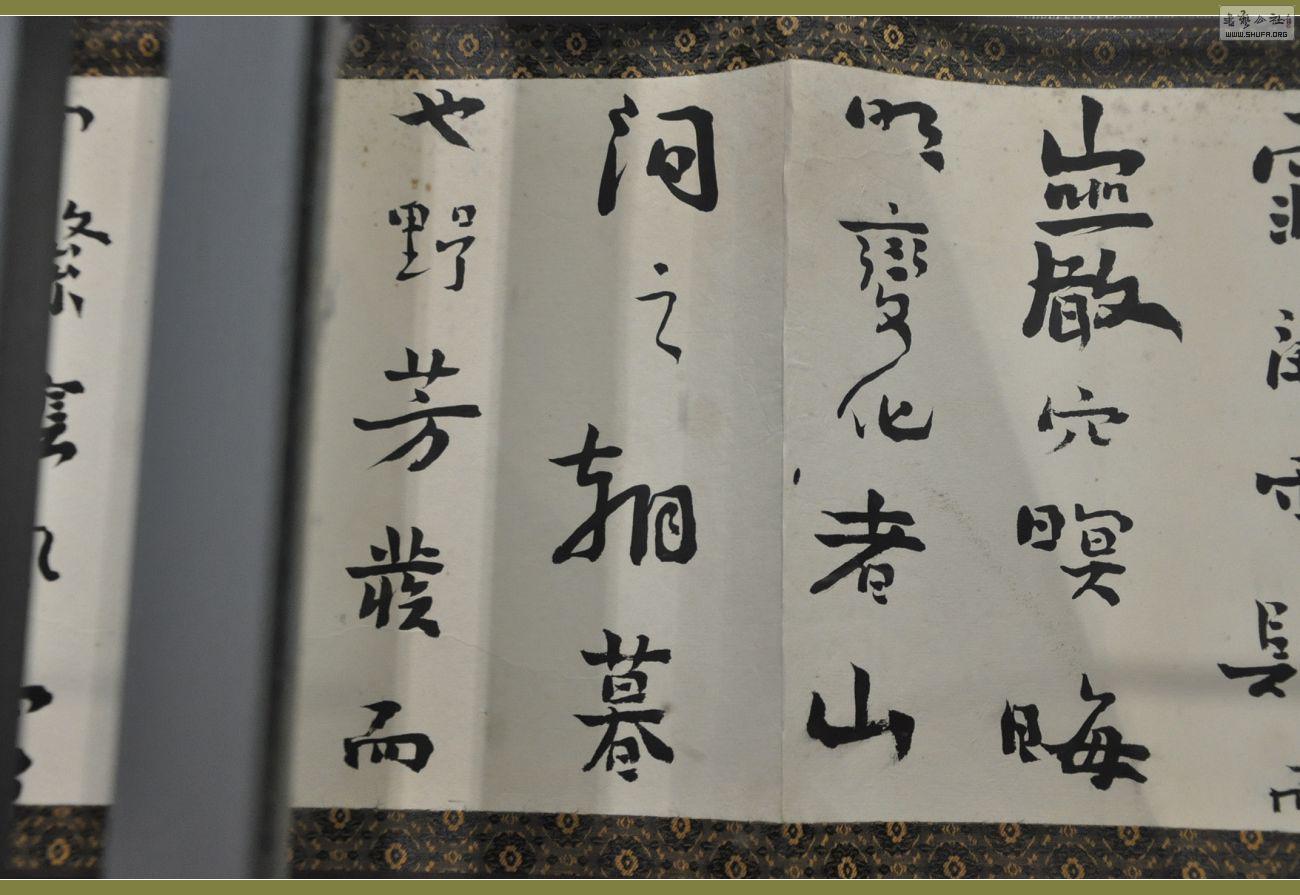 巖穴暝晦
明變化者山
間之朝暮
也野芳發而
繁陰
書藝公社
WWW.SHUFA.ORG